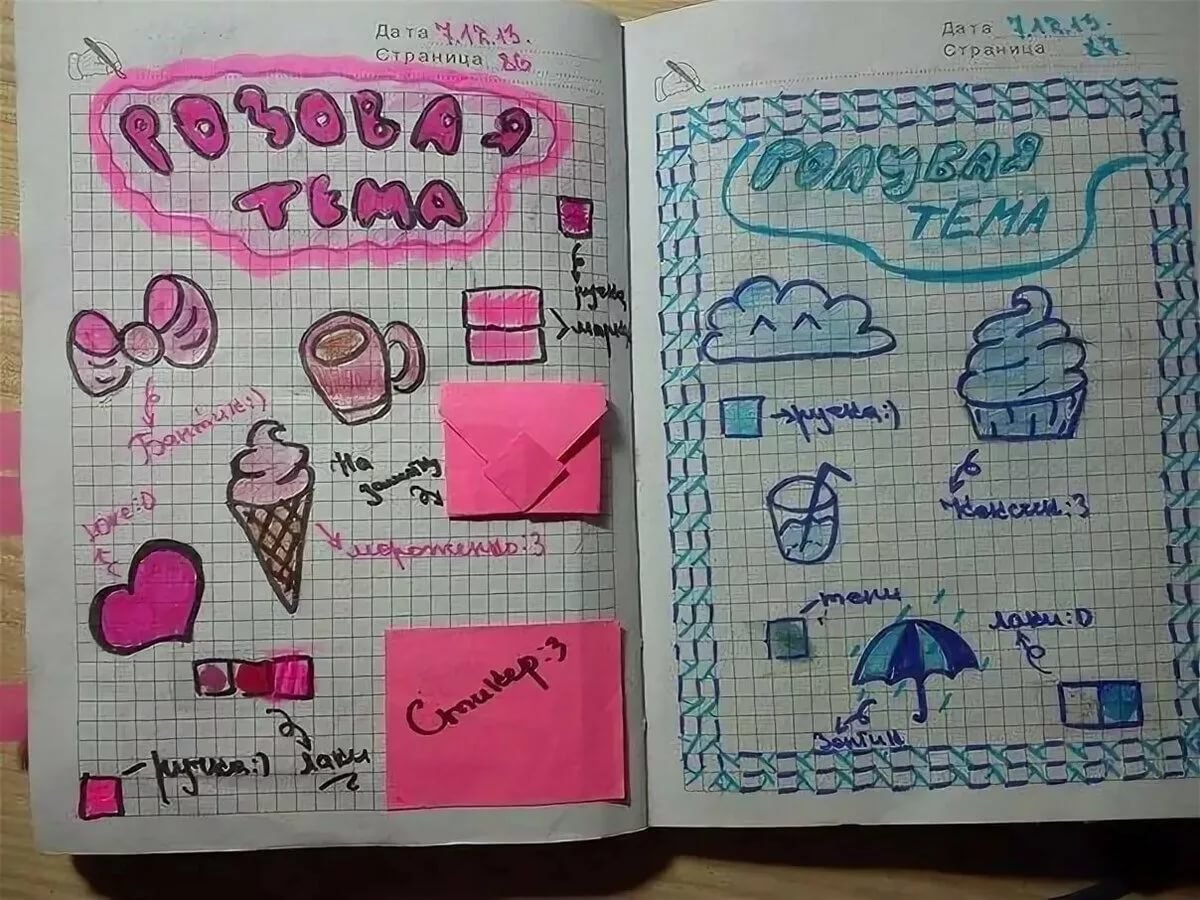 Дата 7.12.13.
Страница 86
РОЗОВАЯ
ТЕМА
ручка
Бантик:)
На
заметку
тоже:D
мороженко:3
Стикер:3
ручка:)
лаки
Дата 7.12.13.
Страница 87
ГОЛУБАЯ
ТЕМА
ручка:)
Кексик:3
тени
лаки:D
Зонтик